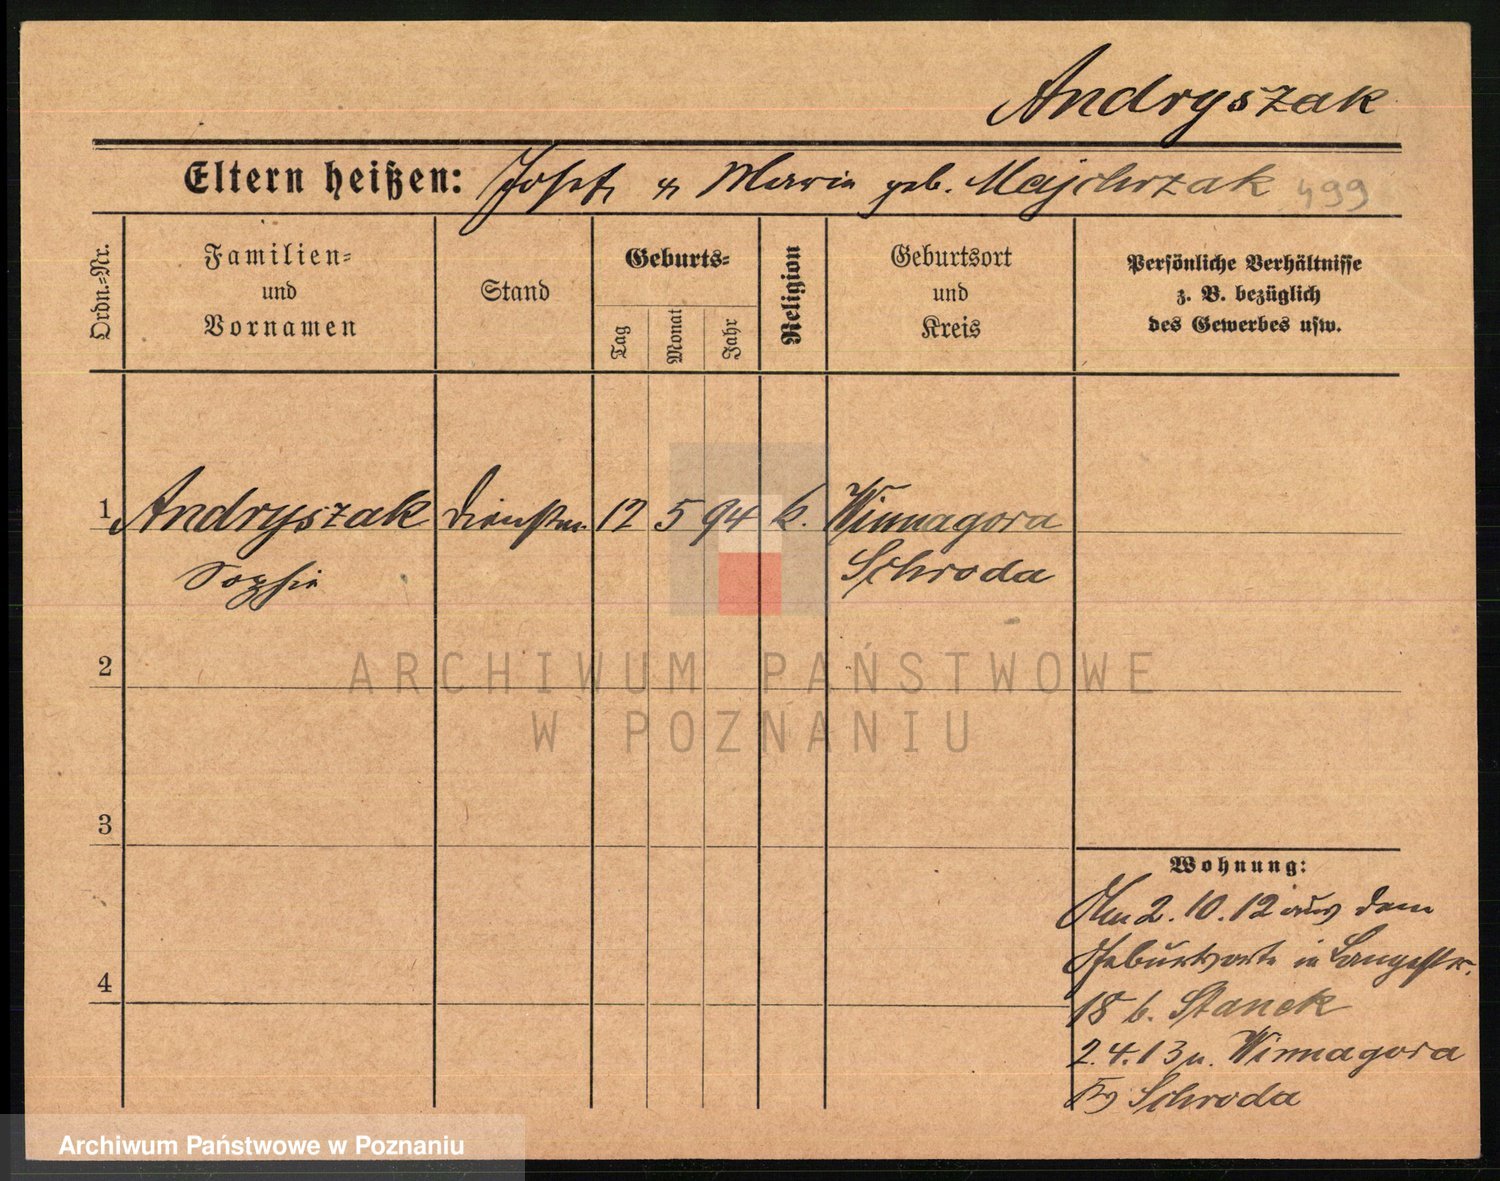 Andryszak
Eltern heißen: Josef u Maria geb. Majchrzak 499
Ordn.-Nr.
Familien-
und
Vornamen
Stand
Geburts-
Tag
Monat
Jahr
Religion
Geburtsort
und
Kreis
Persönliche Verhältnisse
z. B. bezüglich
des Gewerbes usw.
1 Andryszak Dienstm. 12 5 94 k. Winnagora
Sophie Schroda
2
ARCHIWUM PAŃSTWOWE
W POZNANIU
3
4
Wohnung:
Am 2.10.12 aus dem
Geburtsorte in Langestr.
18 b. Stanek
2.4.13 n. Winnagora
Krs Schroda
Archiwum Państwowe w Poznaniu